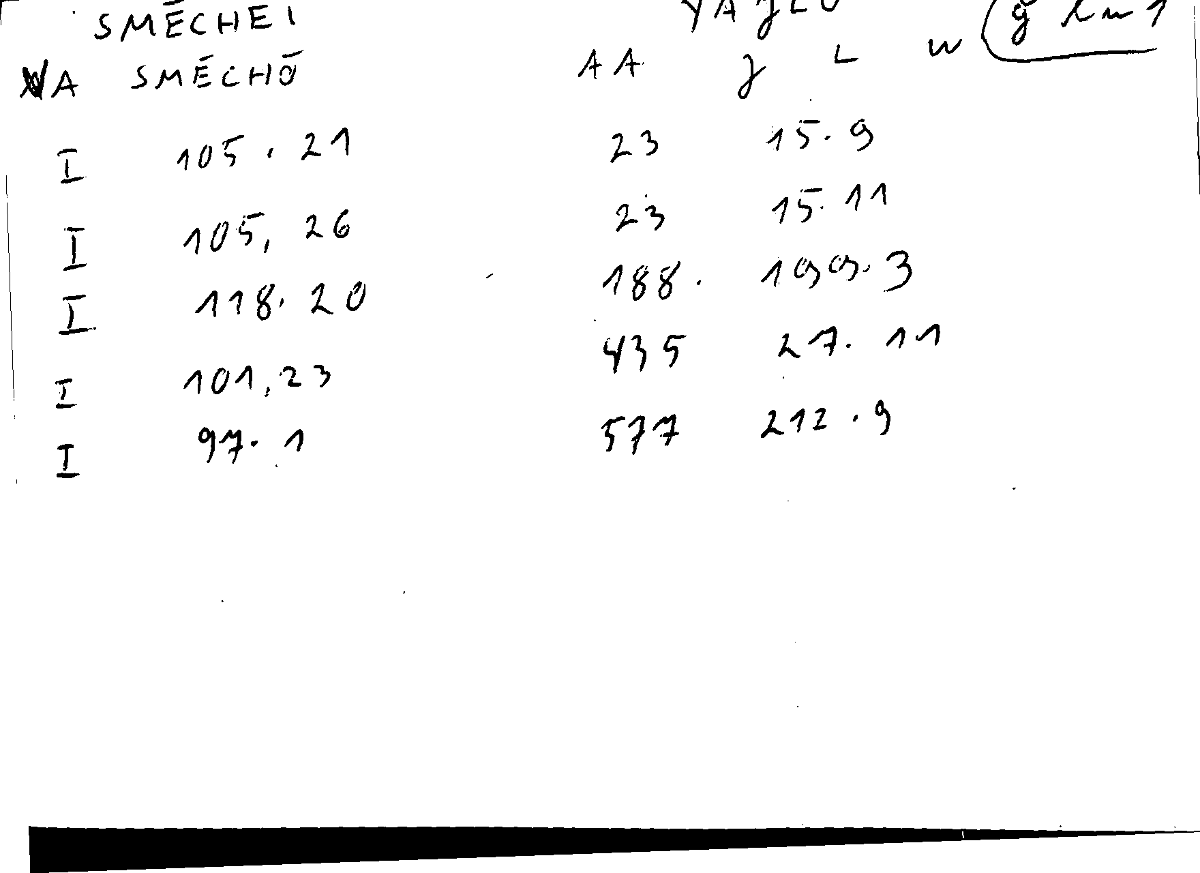 SMĒCHEI YAJLU
A SMĒCHŌ AA J L w
I 105 . 21 23 15 . 9
I 105, 26 23 15 . 11
I 118 . 20 188 . 199 . 3
I 101, 23 435 27 . 11
I 97 . 1 577 212 . 9